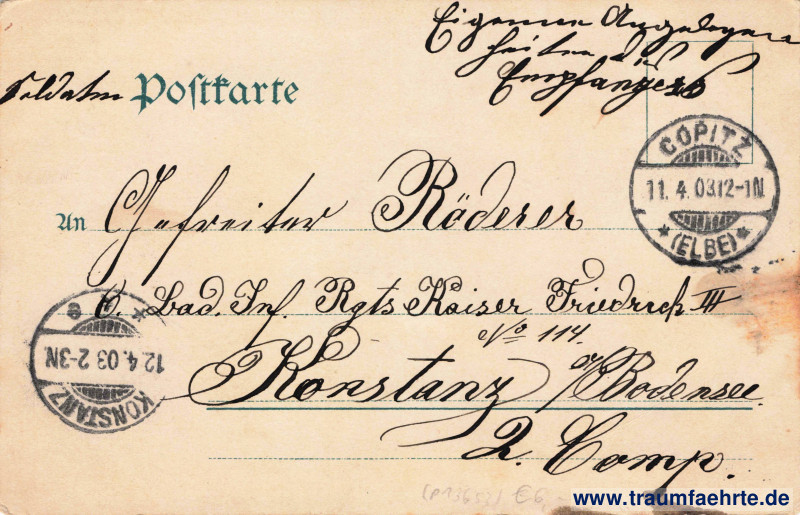 Eigene Angelegen
heiten des
Empfängers
Soldaten Postkarte
COPITZ
11.4.03.12-1N
* (ELBE) *
An Gefreiter Röderer
6. Bad. Inf. Rgts Kaiser Friedrich III
No 114.
Konstanz a/Bodensee.
2. Comp.
KONSTANZ
12.4.03 2-3N
* e
€6,-
www.traumfaehrte.de